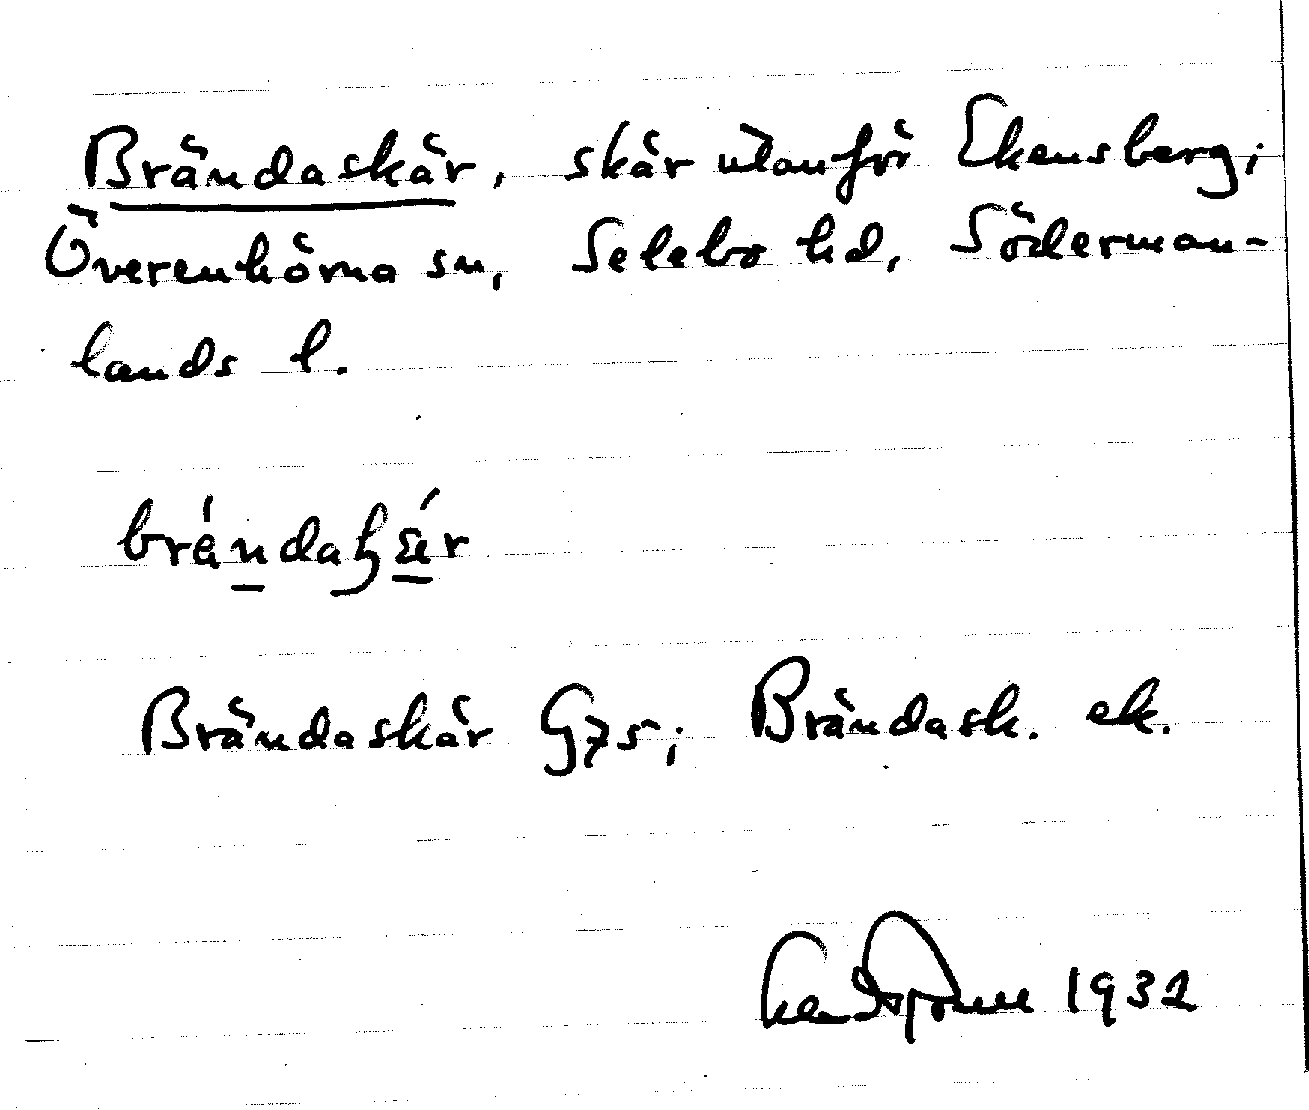 Brändaskär, skär utanför Ekensberg,
Överenhörna sn, Selebo hd, Söderman-
lands l.
Brändaskär G75; Brändask. ek.
1932